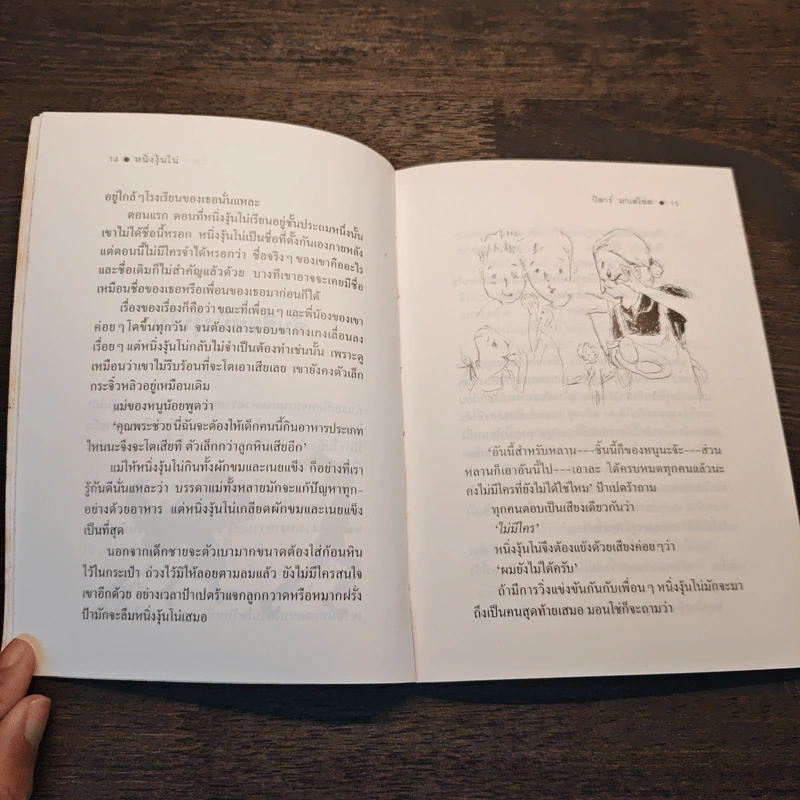 ๑๔ ● หนึ่งงุ้นโน่
อยู่ใกล้ๆโรงเรียนของเธอนั่นแหละ
ตอนแรก ตอนที่หนึ่งงุ้นโน่เรียนอยู่ชั้นประถมหนึ่งนั้น
เขาไม่ได้ชื่อนี้หรอก หนึ่งงุ้นโน่เป็นชื่อที่ตั้งกันเองภายหลัง
แต่ตอนนี้ไม่มีใครจำได้หรอกว่า ชื่อจริงๆ ของเขาคืออะไร
และชื่อเดิมก็ไม่สำคัญแล้วด้วย บางทีเขาอาจจะเคยมีชื่อ
เหมือนชื่อของเธอหรือเพื่อนของเธอมาก่อนก็ได้
เรื่องของเรื่องก็คือว่าขณะที่เพื่อนๆ และพี่น้องของเขา
ค่อยๆ โตขึ้นทุกวัน จนต้องเลาะขอบขากางเกงเลื่อนลง
เรื่อยๆ แต่หนึ่งงุ้นโน่กลับไม่จำเป็นต้องทำเช่นนั้น เพราะดู
เหมือนว่าเขาไม่รีบร้อนที่จะโตเอาเสียเลย เขายังคงตัวเล็ก
กระจิ๋วหลิวอยู่เหมือนเดิม
แม่ของหนูน้อยพูดว่า
‘คุณพระช่วย นี่ฉันจะต้องให้เด็กคนนี้กินอาหารประเภท
ไหนนะจึงจะโตเสียที ตัวเล็กกว่าลูกหินเสียอีก’
แม่ให้หนึ่งงุ้นโน่กินทั้งผักขมและเนยแข็ง ก็อย่างที่เรา
รู้กันดีนั่นแหละว่า บรรดาแม่ทั้งหลายมักจะแก้ปัญหาทุก-
อย่างด้วยอาหาร แต่หนึ่งงุ้นโน่เกลียดผักขมและเนยแข็ง
เป็นที่สุด
นอกจากเด็กชายจะตัวเบามากขนาดต้องใส่ก้อนหิน
ไว้ในกระเป๋า ถ่วงไว้มิให้ลอยตามลมแล้ว ยังไม่มีใครสนใจ
เขาอีกด้วย อย่างเวลาป้าเปตร้าแจกลูกกวาดหรือหมากฝรั่ง
ป้ามักจะลืมหนึ่งงุ้นโน่เสมอ
ปีลาร์ มาเตโอส ● ๑๕
‘อันนี้สำหรับหลาน---ชิ้นนี้ก็ของหนูนะจ๊ะ---ส่วน
หลานก็เอาอันนี้ไป---เอาละ ได้ครบหมดทุกคนแล้วนะ
คงไม่มีใครที่ยังไม่ได้ใช่ไหม’ ป้าเปตร้าถาม
ทุกคนตอบเป็นเสียงเดียวกันว่า
‘ไม่มีใคร’
หนึ่งงุ้นโน่จึงต้องแย้งด้วยเสียงค่อยๆว่า
‘ผมยังไม่ได้ครับ’
ถ้ามีการวิ่งแข่งขันกันกับเพื่อนๆ หนึ่งงุ้นโน่มักจะมา
ถึงเป็นคนสุดท้ายเสมอ มอนโซ่ก็จะถามว่า